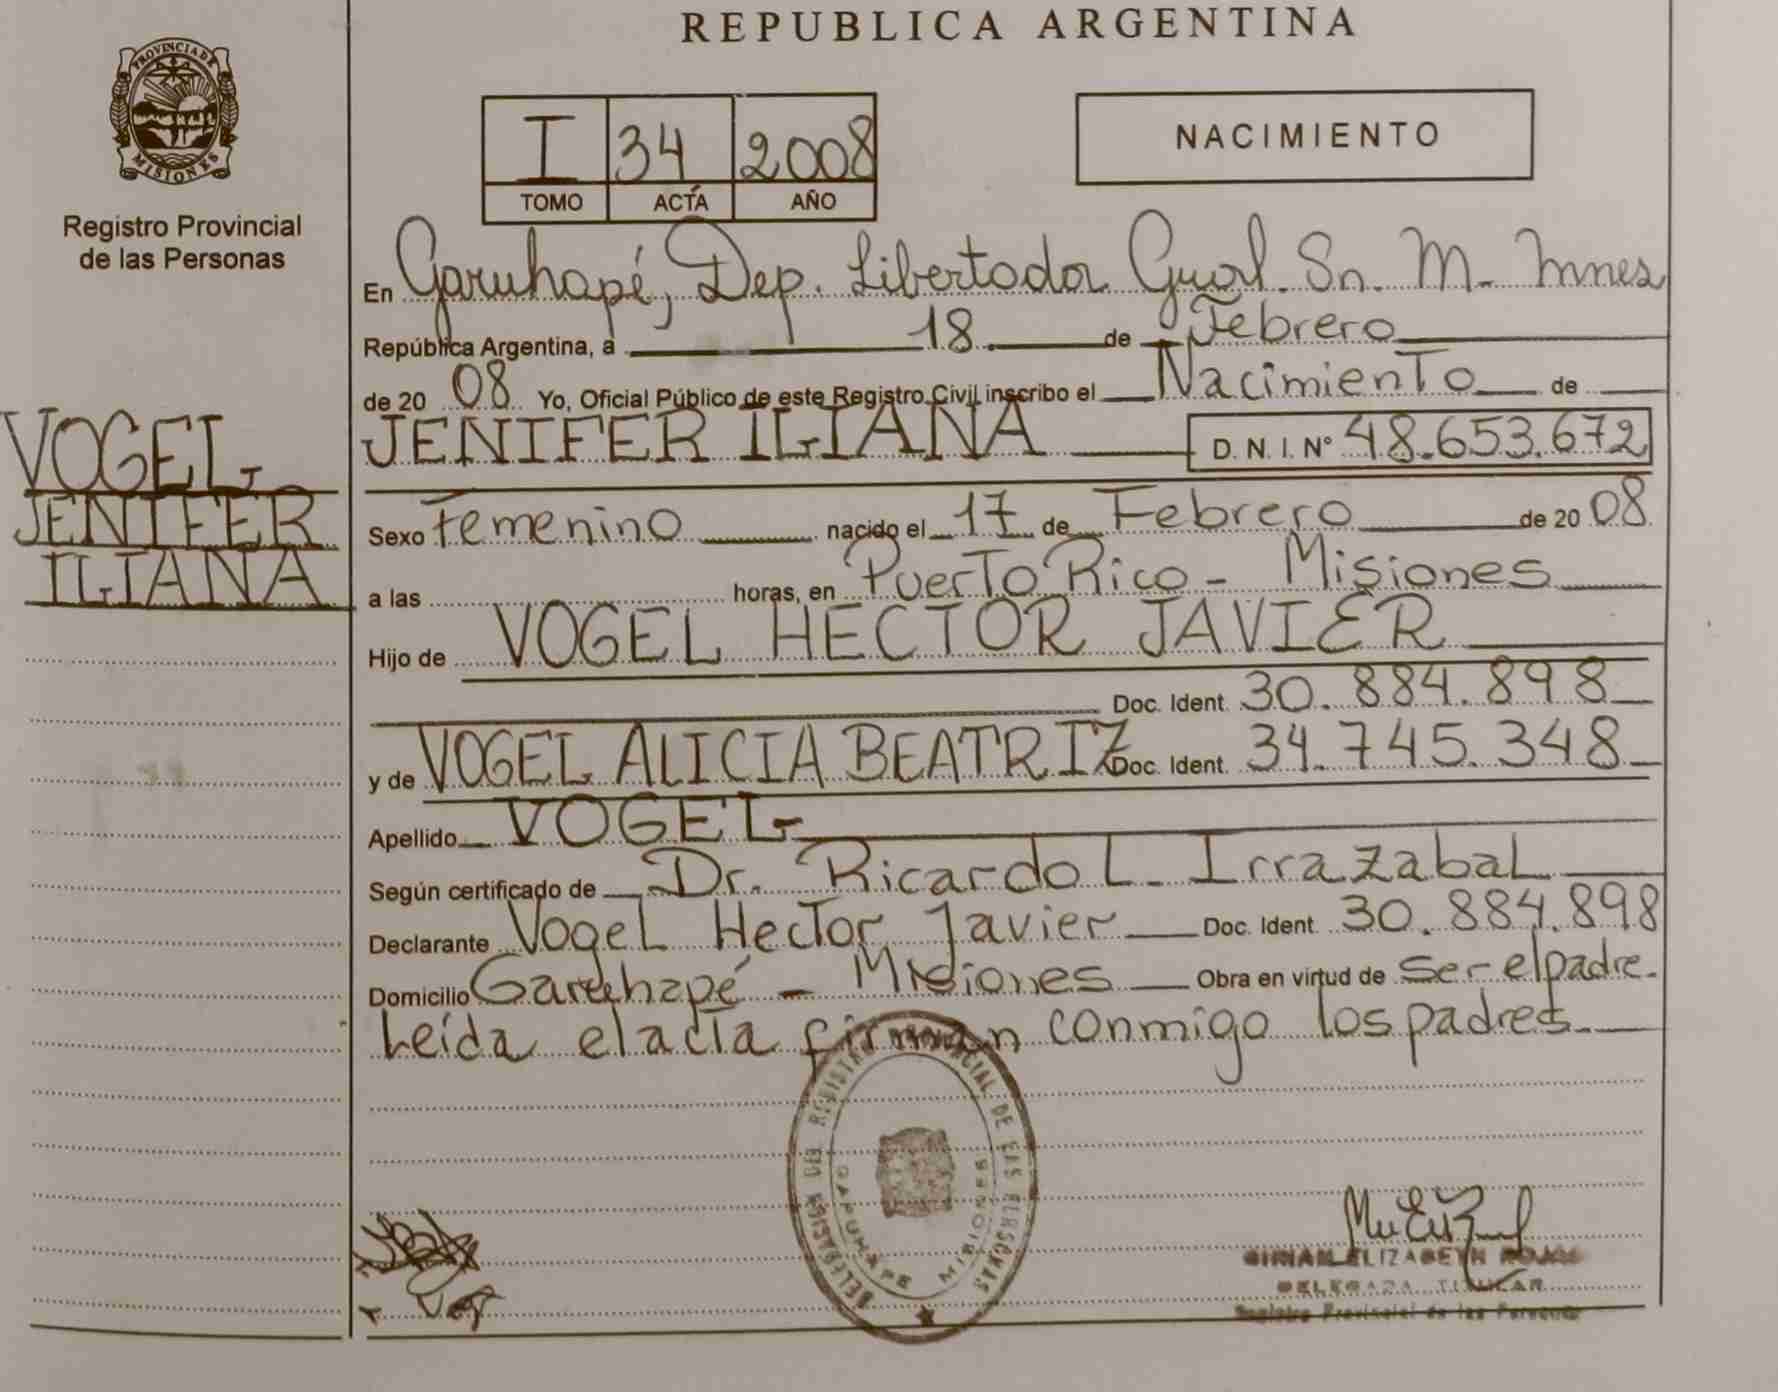 REPUBLICA ARGENTINA
PROVINCIA DE
MISIONES
Registro Provincial
de las Personas
I 34 2008
TOMO ACTA AÑO
NACIMIENTO
En Garuhapé, Dep. Libertador Gral. Sn. M. Mnes
República Argentina, a 18 de Febrero
de 20 08 Yo, Oficial Público de este Registro Civil inscribo el Nacimiento de
JENIFER ILIANA D. N. I. Nº 48.653.672
VOGEL
JENIFER
ILIANA
Sexo Femenino nacido el 17 de Febrero de 20 08
a las horas, en Puerto Rico - Misiones
Hijo de VOGEL HECTOR JAVIER
Doc. Ident. 30.884.898
y de VOGEL ALICIA BEATRIZ Doc. Ident. 34.745.348
Apellido VOGEL
Según certificado de Dr. Ricardo L. Irrazabal
Declarante Vogel Hector Javier Doc. Ident. 30.884.898
Domicilio Garuhapé - Misiones Obra en virtud de ser el padre.
Leída el acta firman conmigo los padres
DELEGACION DEL REGISTRO PROVINCIAL DE LAS PERSONAS
GARUHAPE MISIONES
ELIZABETH ROJAS
DELEGADA TITULAR
Registro Provincial de las Personas